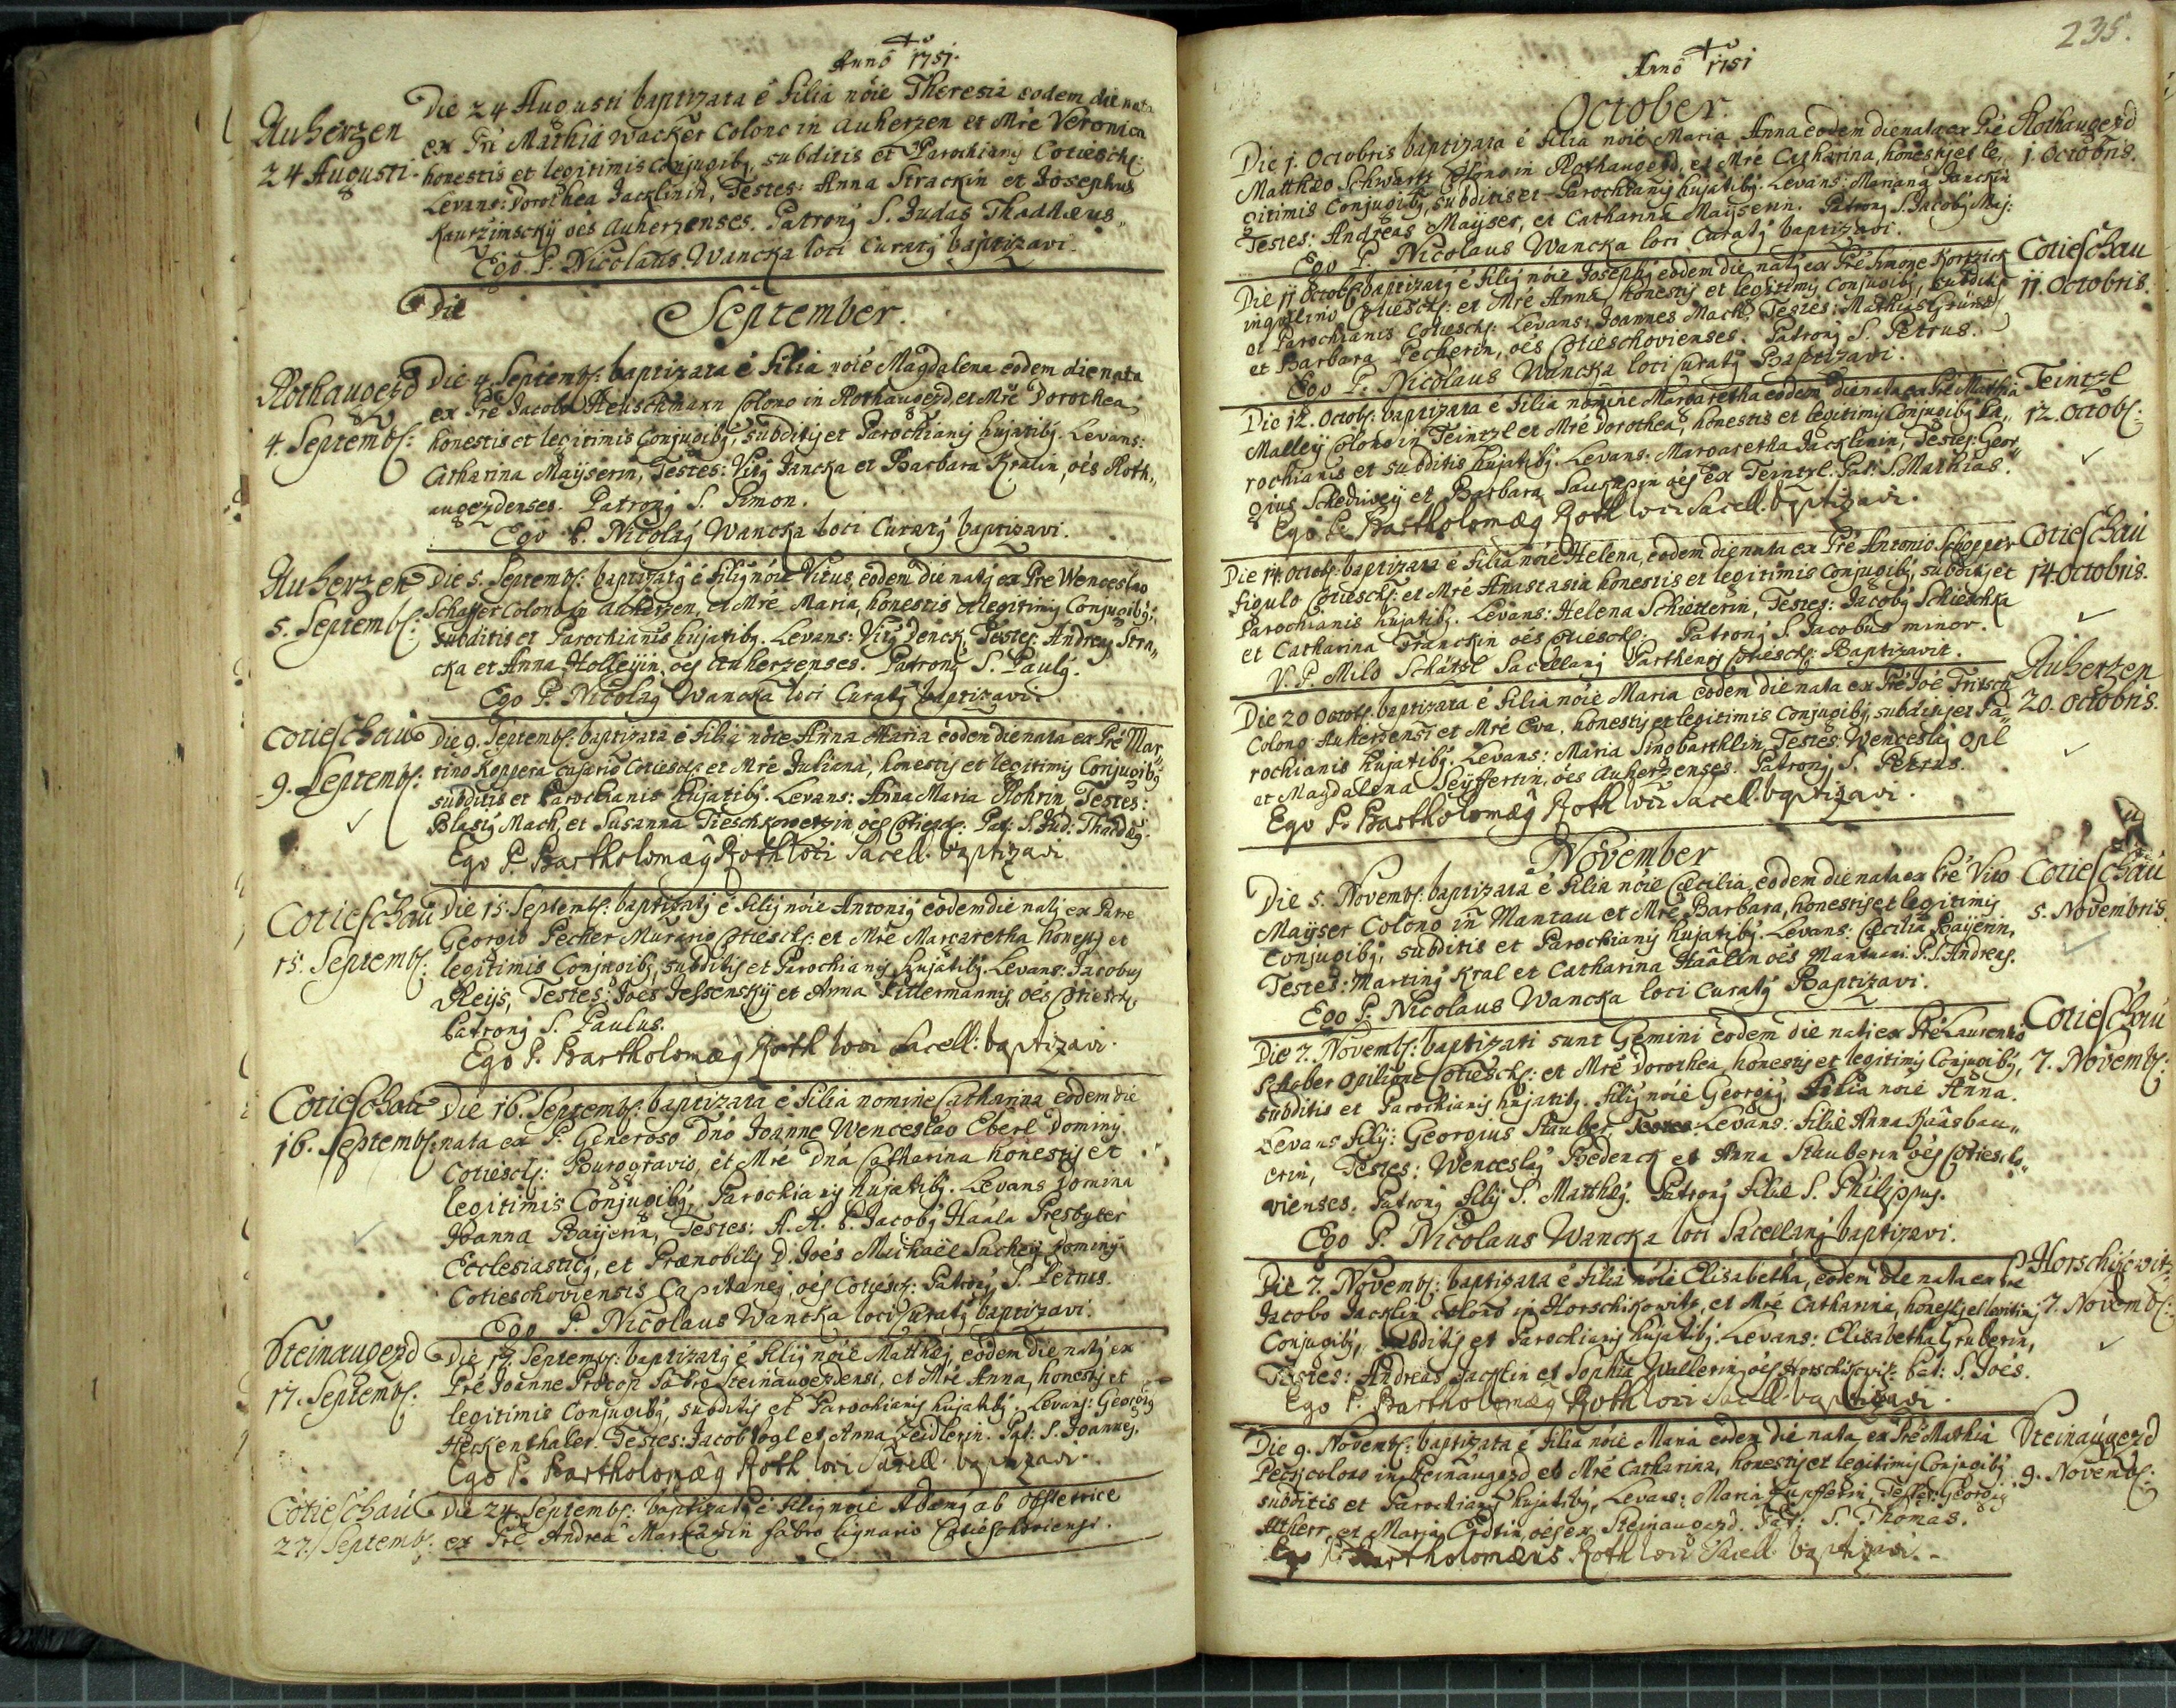 Anno 1751.
Auherzen
24 Augusti.
Die 24 Augusti baptizata é filia nõie Theresia eodem die nata
ex Pre Mathia Wacker Colono in Auherzen et Mre Veronica
honestis et legitimis Conjugibq, subditis et Parochianis Cotiesch:
Levans: Dorothea Jacklinin, Testes: Anna Strackin et Josephus
Kaurzimsckÿ oés Auherzenses. Patronq S. Judas Thadæus.
Ego P. Nicolaus Wancka loci Curatq baptizavi.
Die
September.
Rothaugezd
4. Septembr:
Die 4. Septembr: baptizata é filia noie Magdalena eodem die nata
ex Pre Jacob Heuschmann Colono in Rothaugezd, et Mre Dorothea
honestis et legitimis Conjugibq, subditis et Parochianis hujatibq. Levans:
Catharina Maÿserin, Testes: Vitq Jancka et Barbara Kralin, oés Roth„
augezdenses. Patronq S. Simon.
Ego P. Nicolaq Wancka loci Curatq baptizavi.
Auherzen
5. Septembr:
Die 5. Septembr: baptizatq é filiq nóie Vitus, eodem die natq ex Pre Wenceslao
Schaffer Colono in Auherzen, et Mre Maria, honestis et legitimis Conjugibq,
subditis et Parochianis hujatibq. Levans: Vitq Jenck, Testes: Andreas Stra„
cka et Anna Holleÿin, oés Auherzenses. Patronq S. Paulq.
Ego P. Nicolaq Wancka loci Curatq baptizavi.
Cotieschau
9. Septembr:
Die 9. Septembr: baptizata é filia nóie Anna Maria eodem die nata ex Pre Mar„
tino Koppera casario Cotiesch: et Mre Juliana, honestis et legitimis Conjugibq
subditis et Parochianis hujatibq. Levans: Anna Maria Rohrin, Testes:
Blasiq Mach, et Susanna Tieschkowetzin oés Cotiesch: Pat: S. Jud: Thaddæq.
Ego P. Bartholomæq Roth loci Sacell: baptizavi
Cotieschau
15. Septembr:
Die 15. Septembr: baptizatq é filiq nóie Antoniq eodem die natq ex Patre
Georgio Pecher Murario Cotiesch: et Mre Margaretha honestis et
legitimis Conjugibq, subditis et Parochianis hujatibq. Levans: Jacobus
Reÿs, Testes: Joes Jessenskÿ et Anna Sittermannin oés Cotiesch:
Patronq S. Paulus.
Ego P. Bartholomæq Roth loci Sacell: baptizavi.
Cotieschau
16. Septembr:
Die 16. Septembr: baptizata é filia nomine Catharina eodem die
nata ex P. Generoso Dno Joanne Wenceslao Eberl Dominij
Cotiesch: Burggravio, et Mre Dna Catharina honestis et
legitimis Conjugibq, Parochianis hujatibq. Levans Domina
Joanna Baÿerin, Testes: A. R. P. Jacobq Haala Presbyter
Ecclesiasticq, et Prænobilis D. Joés Michaël Suchÿ Dominij
Cotieschoviensis Capitaneq, oés Cotiesch: Patronq S. Petrus.
Ego P. Nicolaus Wancka loci Curatq baptizavi.
Steinaugezd
17. Septembr:
Die 17. Septembr: baptizatq é filiq nóie Matthæq, eodem die natq ex
Pre Joanne Procop Fabro Steinaugezdensi, et Mre Anna, honestis et
legitimis Conjugibq, subditis et Parochianis hujatibq. Levans: Georgiq
Herkenthaler. Testes: Jacob Vogl et Anna Zeidlerin. Pat: S. Joannes.
Ego P. Bartholomæq Roth loci Sacell: baptizavi.
Cotieschau
27. Septembr:
Die 24. Septembr: baptizatq é filiq nóie Adamq ab obstetrice
ex Pre Andrea Markazin fabro lignario Cotieschoviensi.
235.
Anno 1751
October.
Die 1. Octobris baptizata é filia noie Maria Anna eodem die nata ex Pre
Matthæo Schwartz Colono in Rothaugezd, et Mre Catharina, honestis et le„
gitimis Conjugibq, subditis et Parochianis hujatibq. Levans: Mariana Janckin
Testes: Andreas Maÿser, et Catharina Maÿserin. Patronq S. Jacobq Maj:
Ego P. Nicolaus Wancka loci Curatq baptizavi.
Rothaugezd
1. Octobris.
Die 11 Octobr: baptizatq é filiq nóie Josephq eodem die natq ex Pre Simone Kortzick
inquilino Cotiesch: et Mre Anna, honestis et legitimis Conjugibq, subditis
et Parochianis Cotiesch: Levans: Joannes Mach, Testes: Mathias Grüner
et Barbara Pecherin, oés Cotieschovienses. Patronq S. Petrus.
Ego P. Nicolaus Wancka loci Curatq Baptizavi.
Cotieschau
11. Octobris.
Die 12. Octobr: baptizata é filia nomine Margaretha eodem die nata ex Pre Mathia
Malleÿ Colono in Teintzl et Mre Dorothea, honestis et legitimis Conjugibq Pa„
rochianis et subditis hujatibq. Levans: Margaretha Jacklinin, Testes: Geor„
gius Schediweÿ et Barbara Sauguzin oés ex Teintzl. Pat: S. Mathias.
Ego P. Bartholomæq Roth loci Sacell: baptizavi.
Teintzl
12. Octobr:
Die 14. Octobr: baptizata é filia nóie Helena, eodem die nata ex Pre Antonio Schopper
figulo Cotiesch: et Mre Anastasia honestis et legitimis Conjugibq, subditis et
Parochianis hujatibq. Levans: Helena Schietlerin, Testes: Jacobq Schieschka
et Catharina Franckin oés Cotiesch: Patronq S. Jacobus minor.
V. P. Milo Schätzl Sacellanq Parthenis Cotiesch: Baptizavit.
Cotieschau
14. Octobris.
Die 20 Octobr: baptizata é filia nóie Maria eodem die nata ex Pre Joe Fritsch
Colono Auherzensi et Mre Eva, honestis et legitimis Conjugibq, subditis et Pa„
rochianis hujatibq. Levans: Maria Singbarthlin, Testes: Wenceslaq Opl
et Magdalena Seÿffertin, oes Auherzenses. Patronq S. Petrus.
Ego P. Bartholomæq Roth loci Sacell: baptizavi.
Auherzen
20. Octobris.
November
Die 5. Novembr: baptizata é filia nóie Cæcilia, eodem die nata ex Pre Vito
Maÿser Colono in Mantau et Mre Barbara, honestis et legitimis
Conjugibq, subditis et Parochianis hujatibq. Levans: Cæcilia Baÿerin,
Testes: Martinq Kral et Catharina Haälin oés Mantau: P. S. Andreas.
Ego P. Nicolaus Wancka loci Curatq Baptizavi.
Cotieschau
5. Novembris.
Die 7. Novembr: baptizati sunt Gemini eodem die nati ex Pre Laurentio
Schober Opilione Cotiesch: et Mre Dorothea, honestis et legitimis Conjugibq,
subditis et Parochianis hujatibq. Filiq nóie Georgiq, Filia noie Anna.
Levans filij: Georgius Stauber, Levans: filiæ Anna Kaasbau„
erin, Testes: Wenceslaq Bedenck et Anna Stauberin oés Cotiescho„
vienses. Patronq filij S. Matthæq. Patronq filiæ S. Philippus.
Ego P. Nicolaus Wancka loci Sacellanq baptizavi.
Cotieschau
7. Novembr:
Die 7. Novembr: baptizata é filia nóie Elisabetha, eodem die nata ex Pre
Jacobo Jacklin colono in Horschikowitz, et Mre Catharina, honestis et legitimis
Conjugibq, subditis et Parochianis hujatibq. Levans: Elisabetha Gruberin,
Testes: Andreas Jacklin et Sophia Wullerin oés Horschikowitz: Pat: S. Joés.
Ego P. Bartholomæq Roth loci Sacell: baptizavi.
Horschikowitz
7. Novembr:
Die 9. Novembr: baptizata é filia nóie Maria eodem die nata ex Pre Mathia
Pecz colono in Steinaugezd et Mre Catharina, honestis et legitimis Conjugibq
subditis et Parochianis hujatibq, Levans: Maria Kupfferin, Testes: Georgiq
Altherr, et Maria Erdtin, oés ex Steinaugezd. Pat: S. Thomas.
Ego P. Bartholomæus Roth loci Sacell: baptizavi.
Steinaugezd
9. Novembr: